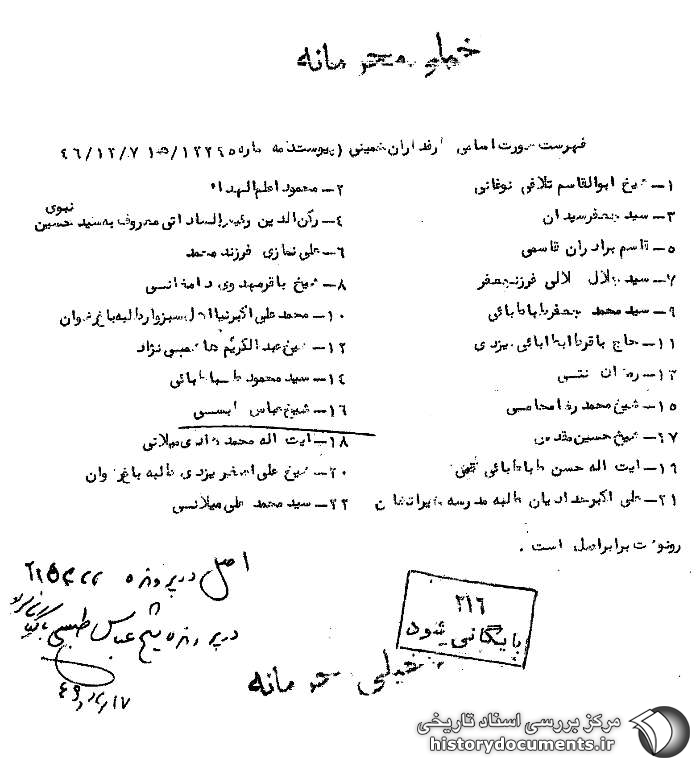 خیلی محرمانه
فهرست صورت اسامی طرفداران خمینی (پیوست نامه ۴۶/۱۲/۷
۱- شیخ ابوالقاسم تلافی نوغانی
۲- محمود اعلم الهدا
۳- سید جعفر سیدان
۴- رکن الدین رفیع الساداتی معروف به سید حسین نبوی
۵- قاسم برادران قاسمی
۶- علی نمازی فرزند محمد
۷- سید جلال لالی فرزند جعفر
۸- شیخ باقر مهدوی دامغانی
۹- سید محمد جعفر طباطبائی
۱۰- محمد علی اکبرنیا اهل سبزوار طلبه باغ رضوان
۱۱- حاج باقر طباطبائی یزدی
۱۲- شیخ عبدالکریم هاشمی نژاد
۱۳- رمضان
۱۴- سید محمود طباطبائی
۱۵- شیخ محمد رضا محامی
۱۶- شیخ عباس طبسی
۱۷- شیخ حسین مقدس
۱۸- آیت اله محمد هادی میلانی
۱۹- آیت اله حسن طباطبائی قمی
۲۰- شیخ علی اصغر یزدی طلبه باغ رضوان
۲۱- علی اکبر طلبه مدرسه خیراتخان
۲۲- سید محمد علی میلانی
رونوشت برابر اصل است.
اصل در پرونده
در پرونده شیخ عباس طبسی بایگانی
۲۱۶
بایگانی شود
خیلی محرمانه
مرکز بررسی اسناد تاریخی
historydocuments.ir